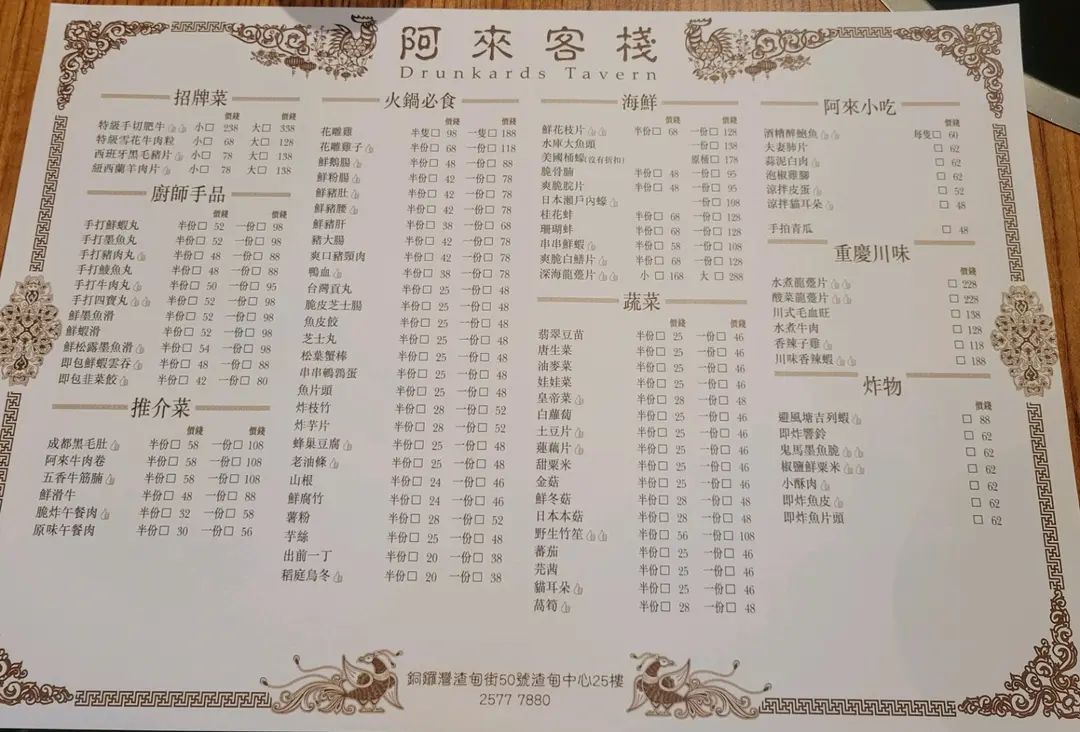 阿來客棧
Drunkards Tavern
招牌菜
價錢 價錢
特級手切肥牛 小口 238 大口 338
特級雪花牛肉粒 小口 68 大口 128
西班牙黑毛豬片 小口 78 大口 138
紐西蘭羊肉片 小口 78 大口 138
廚師手品
價錢 價錢
手打鮮蝦丸 半份口 52 一份口 98
手打墨魚丸 半份口 52 一份口 98
手打豬肉丸 半份口 48 一份口 88
手打鯪魚丸 半份口 48 一份口 88
手打牛肉丸 半份口 50 一份口 95
手打四寶丸 半份口 52 一份口 98
鮮墨魚滑 半份口 52 一份口 98
鮮蝦滑 半份口 52 一份口 98
鮮松露墨魚滑 半份口 54 一份口 98
即包鮮蝦雲吞 半份口 48 一份口 88
即包韭菜餃 半份口 42 一份口 80
推介菜
價錢 價錢
成都黑毛肚 半份口 58 一份口 108
阿來牛肉卷 半份口 58 一份口 108
五香牛筋腩 半份口 58 一份口 108
鮮滑牛 半份口 48 一份口 88
脆炸午餐肉 半份口 32 一份口 58
原味午餐肉 半份口 30 一份口 56
火鍋必食
價錢 價錢
花雕雞 半隻口 98 一隻口 188
花雕雞子 半份口 68 一份口 118
鮮鵝腸 半份口 48 一份口 88
鮮粉腸 半份口 42 一份口 78
鮮豬肚 半份口 42 一份口 78
鮮豬腰 半份口 42 一份口 78
鮮豬肝 半份口 38 一份口 68
豬大腸 半份口 42 一份口 78
爽口豬頸肉 半份口 42 一份口 78
鴨血 半份口 38 一份口 78
台灣貢丸 半份口 25 一份口 48
脆皮芝士腸 半份口 25 一份口 48
魚皮餃 半份口 25 一份口 48
芝士丸 半份口 25 一份口 48
松葉蟹棒 半份口 25 一份口 48
串串鵪鶉蛋 半份口 25 一份口 48
魚片頭 半份口 25 一份口 48
炸枝竹 半份口 28 一份口 52
炸芋片 半份口 28 一份口 52
蜂巢豆腐 半份口 25 一份口 48
老油條 半份口 25 一份口 48
山根 半份口 24 一份口 46
鮮腐竹 半份口 24 一份口 46
薯粉 半份口 28 一份口 52
芋絲 半份口 25 一份口 48
出前一丁 半份口 20 一份口 38
稻庭烏冬 半份口 20 一份口 38
海鮮
價錢 價錢
鮮花枝片 半份口 68 一份口 128
水庫大魚頭 一份口 138
美國桶蠔(沒有折扣) 原桶口 178
脆骨腩 半份口 48 一份口 95
爽脆脘片 半份口 48 一份口 95
日本瀨戶內蠔 一份口 198
桂花蚌 半份口 68 一份口 128
珊瑚蚌 半份口 68 一份口 128
串串鮮蝦 半份口 58 一份口 108
爽脆白鱔片 半份口 68 一份口 128
深海龍躉片 小口 168 大口 288
蔬菜
價錢 價錢
翡翠豆苗 半份口 25 一份口 46
唐生菜 半份口 25 一份口 46
油麥菜 半份口 25 一份口 46
娃娃菜 半份口 25 一份口 46
皇帝菜 半份口 25 一份口 46
白蘿蔔 半份口 25 一份口 46
土豆片 半份口 25 一份口 46
蓮藕片 半份口 25 一份口 46
甜粟米 半份口 25 一份口 46
金菇 半份口 25 一份口 46
鮮冬菇 半份口 28 一份口 48
日本本菇 半份口 28 一份口 48
野生竹笙 半份口 56 一份口 108
蕃茄 半份口 25 一份口 46
芫茜 半份口 25 一份口 46
貓耳朵 半份口 25 一份口 46
萵筍 半份口 28 一份口 48
阿來小吃
價錢
酒糟醉鮑魚 每隻口 60
夫妻肺片 口 62
蒜泥白肉 口 62
泡椒雞腳 口 62
涼拌皮蛋 口 52
涼拌貓耳朵 口 48
手拍青瓜 口 48
重慶川味
價錢
水煮龍躉片 口 228
酸菜龍躉片 口 228
川式毛血旺 口 138
水煮牛肉 口 128
香辣子雞 口 118
川味香辣蝦 口 188
炸物
價錢
避風塘吉列蝦 口 88
即炸響鈴 口 62
鬼馬墨魚脆 口 62
椒鹽鮮粟米 口 62
小酥肉 口 62
即炸魚皮 口 62
即炸魚片頭 口 62
銅鑼灣渣甸街50號渣甸中心25樓
2577 7880